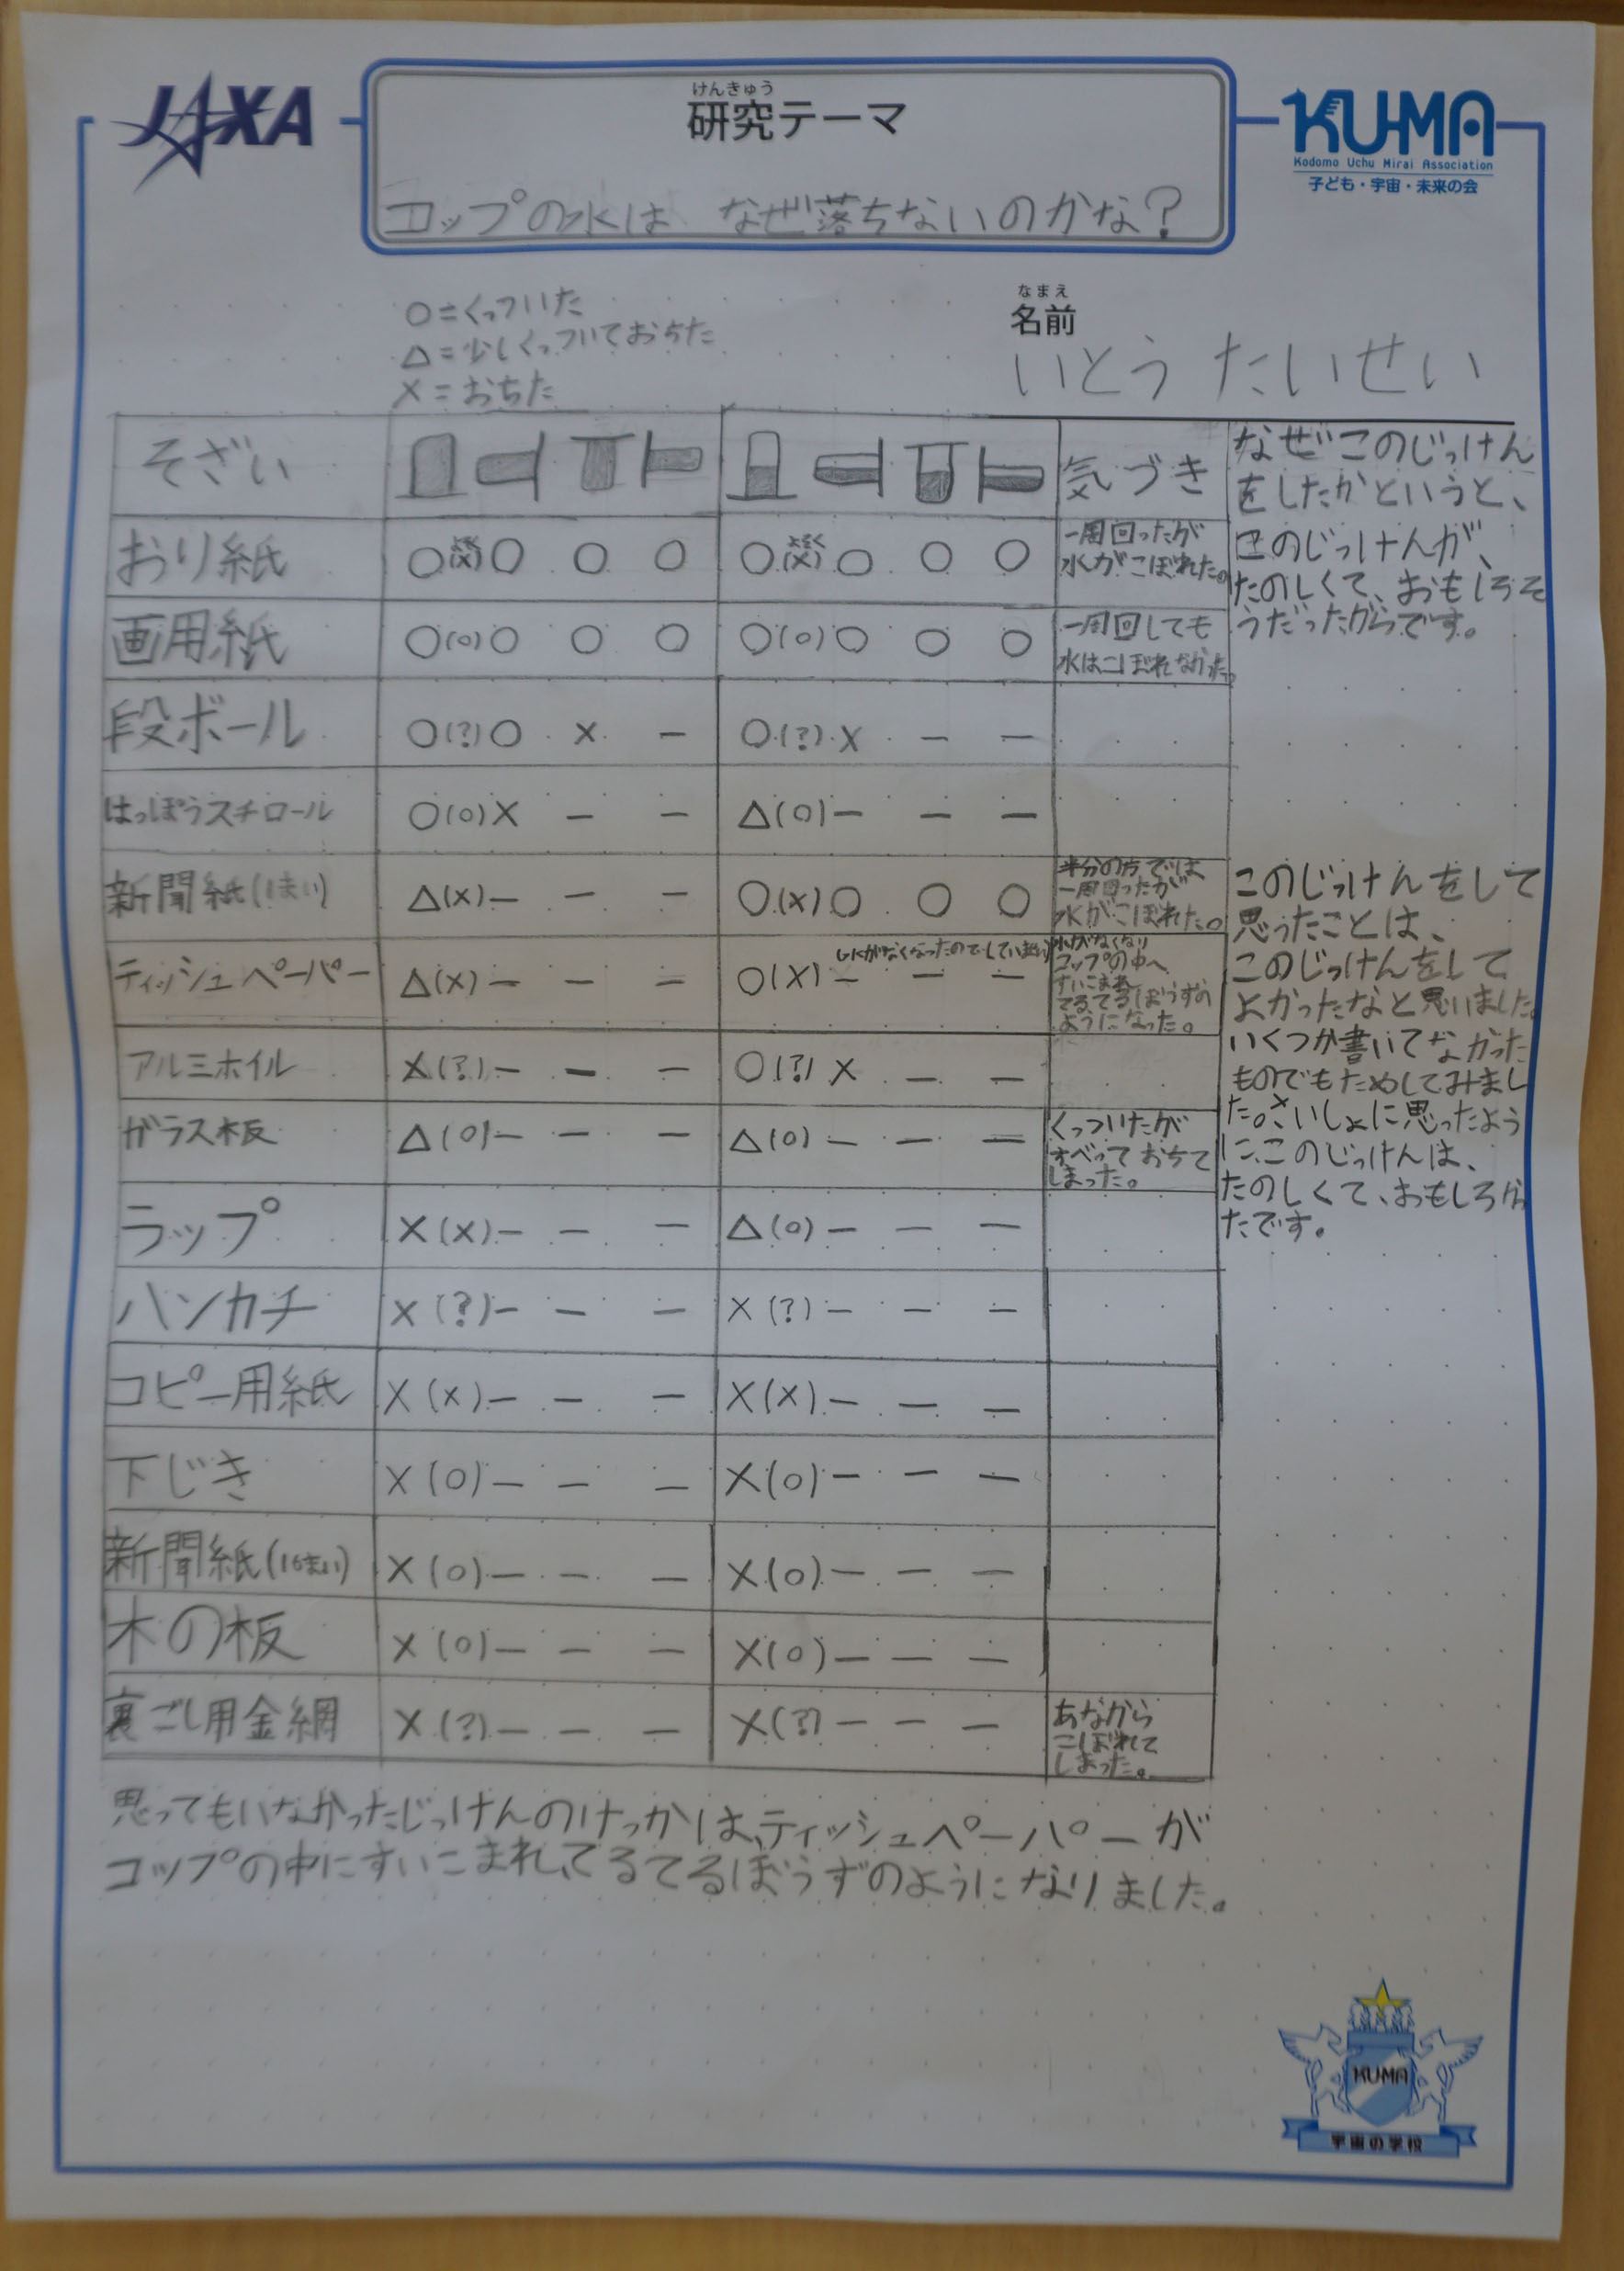 JAXA
けんきゅう
研究テーマ
コップの水は なぜ落ちないのかな?
KU-MA
Kodomo Uchu Mirai Association
子ども・宇宙・未来の会
○=くっついた
△=少しくっついておちた
×=おちた
なまえ
名前
いとう たいせい
そざい
気づき
おり紙 ○(よそく ×)○ ○ ○ ○(よそく ×)○ ○ ○
一周回ったが
水がこぼれた。
画用紙 ○(○)○ ○ ○ ○(○)○ ○ ○
一周回しても
水はこぼれなかった。
段ボール ○(?)○ × − ○(?)× − −
はっぽうスチロール ○(○)× − − △(○)− − −
新聞紙(1まい) △(×)− − − ○(×)○ ○ ○
半分の方では
一周回ったが
水がこぼれた。
ティッシュペーパー △(×)− − − ○(×)− − −
水がなくなり
コップの中へ
すいこまれ
てるてるぼうずの
ようになった。
アルミホイル ×(?)− − − ○(?)× − −
ガラス板 △(○)− − − △(○)− − −
くっついたが
すべっておちて
しまった。
ラップ ×(×)− − − △(○)− − −
ハンカチ ×(?)− − − ×(?)− − −
コピー用紙 ×(×)− − − ×(×)− − −
下じき ×(○)− − − ×(○)− − −
新聞紙(16まい) ×(○)− − − ×(○)− − −
木の板 ×(○)− − − ×(○)− − −
裏ごし用金網 ×(?)− − − ×(?)− − −
あなから
こぼれて
しまった。
なぜこのじっけん
をしたかというと、
このじっけんが、
たのしくて、おもしろそ
うだったからです。
このじっけんをして
思ったことは、
このじっけんをして
よかったなと思いました。
いくつか書いてなかった
ものでもためしてみまし
た。さいしょに思ったよう
に、このじっけんは、
たのしくて、おもしろかっ
たです。
思ってもいなかったじっけんのけっかは、ティッシュペーパーが
コップの中にすいこまれ、てるてるぼうずのようになりました。
KUMA
宇宙の学校